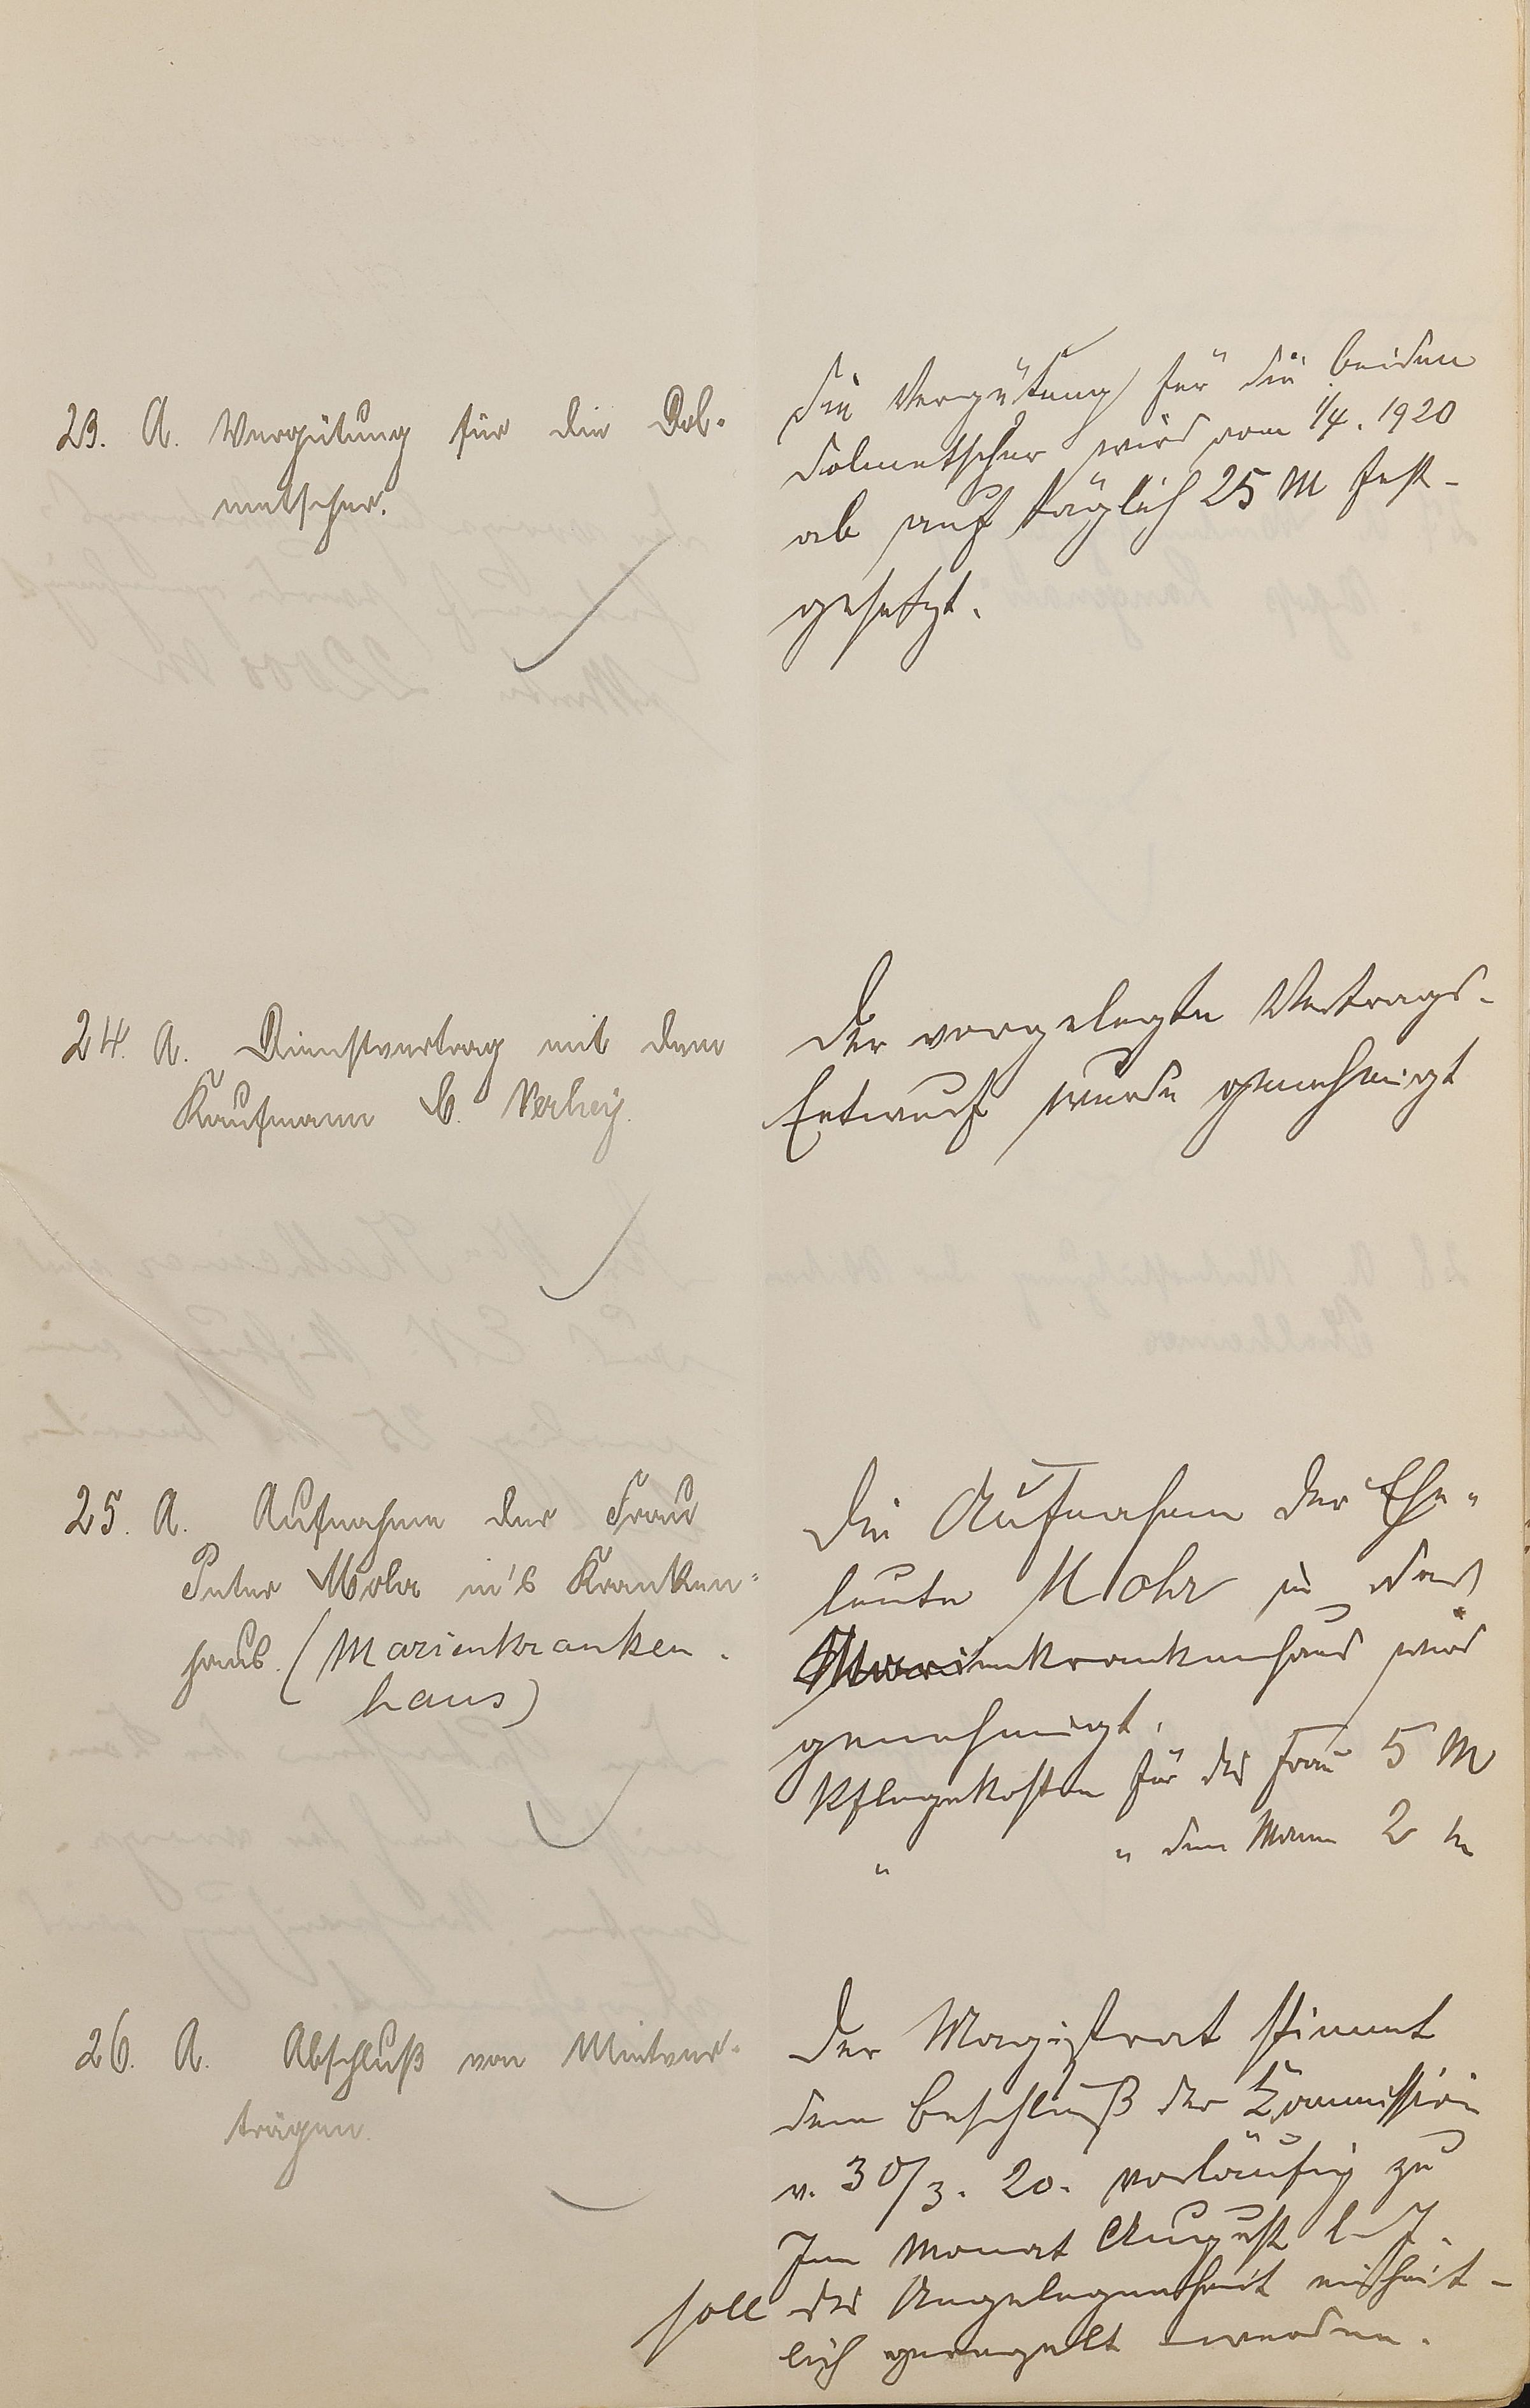 23. A. Vergütung für die Dol-
metscher.
Die Vergütung für die beiden
Dolmetscher wird vom 1/4. 1920
ab auf täglich 25 M fest-
gesetzt.
24. A. Dienstvertrag mit dem
Kaufmann C. Verheÿ.
Der vorgelegte Vertrags-
Entwurf wurde genehmigt
25. A. Aufnahme der Frau
Peter Mohr in's Kranken-
haus. (Marienkranken-
haus)
Die Aufnahme der Ehe-
leute Mohr in das
Marienkrankenhaus wird
genehmigt.
Pflegekosten für die Frau 5 M
" " den Mann 2 M
26. A. Abschluß von Mietver-
trägen.
Der Magistrat stimmt
dem Beschluß der Kommission
v. 30/3. 20. vorläufig zu
Im Monat August l. J.
soll die Angelegenheit einheit-
lich geregelt werden.